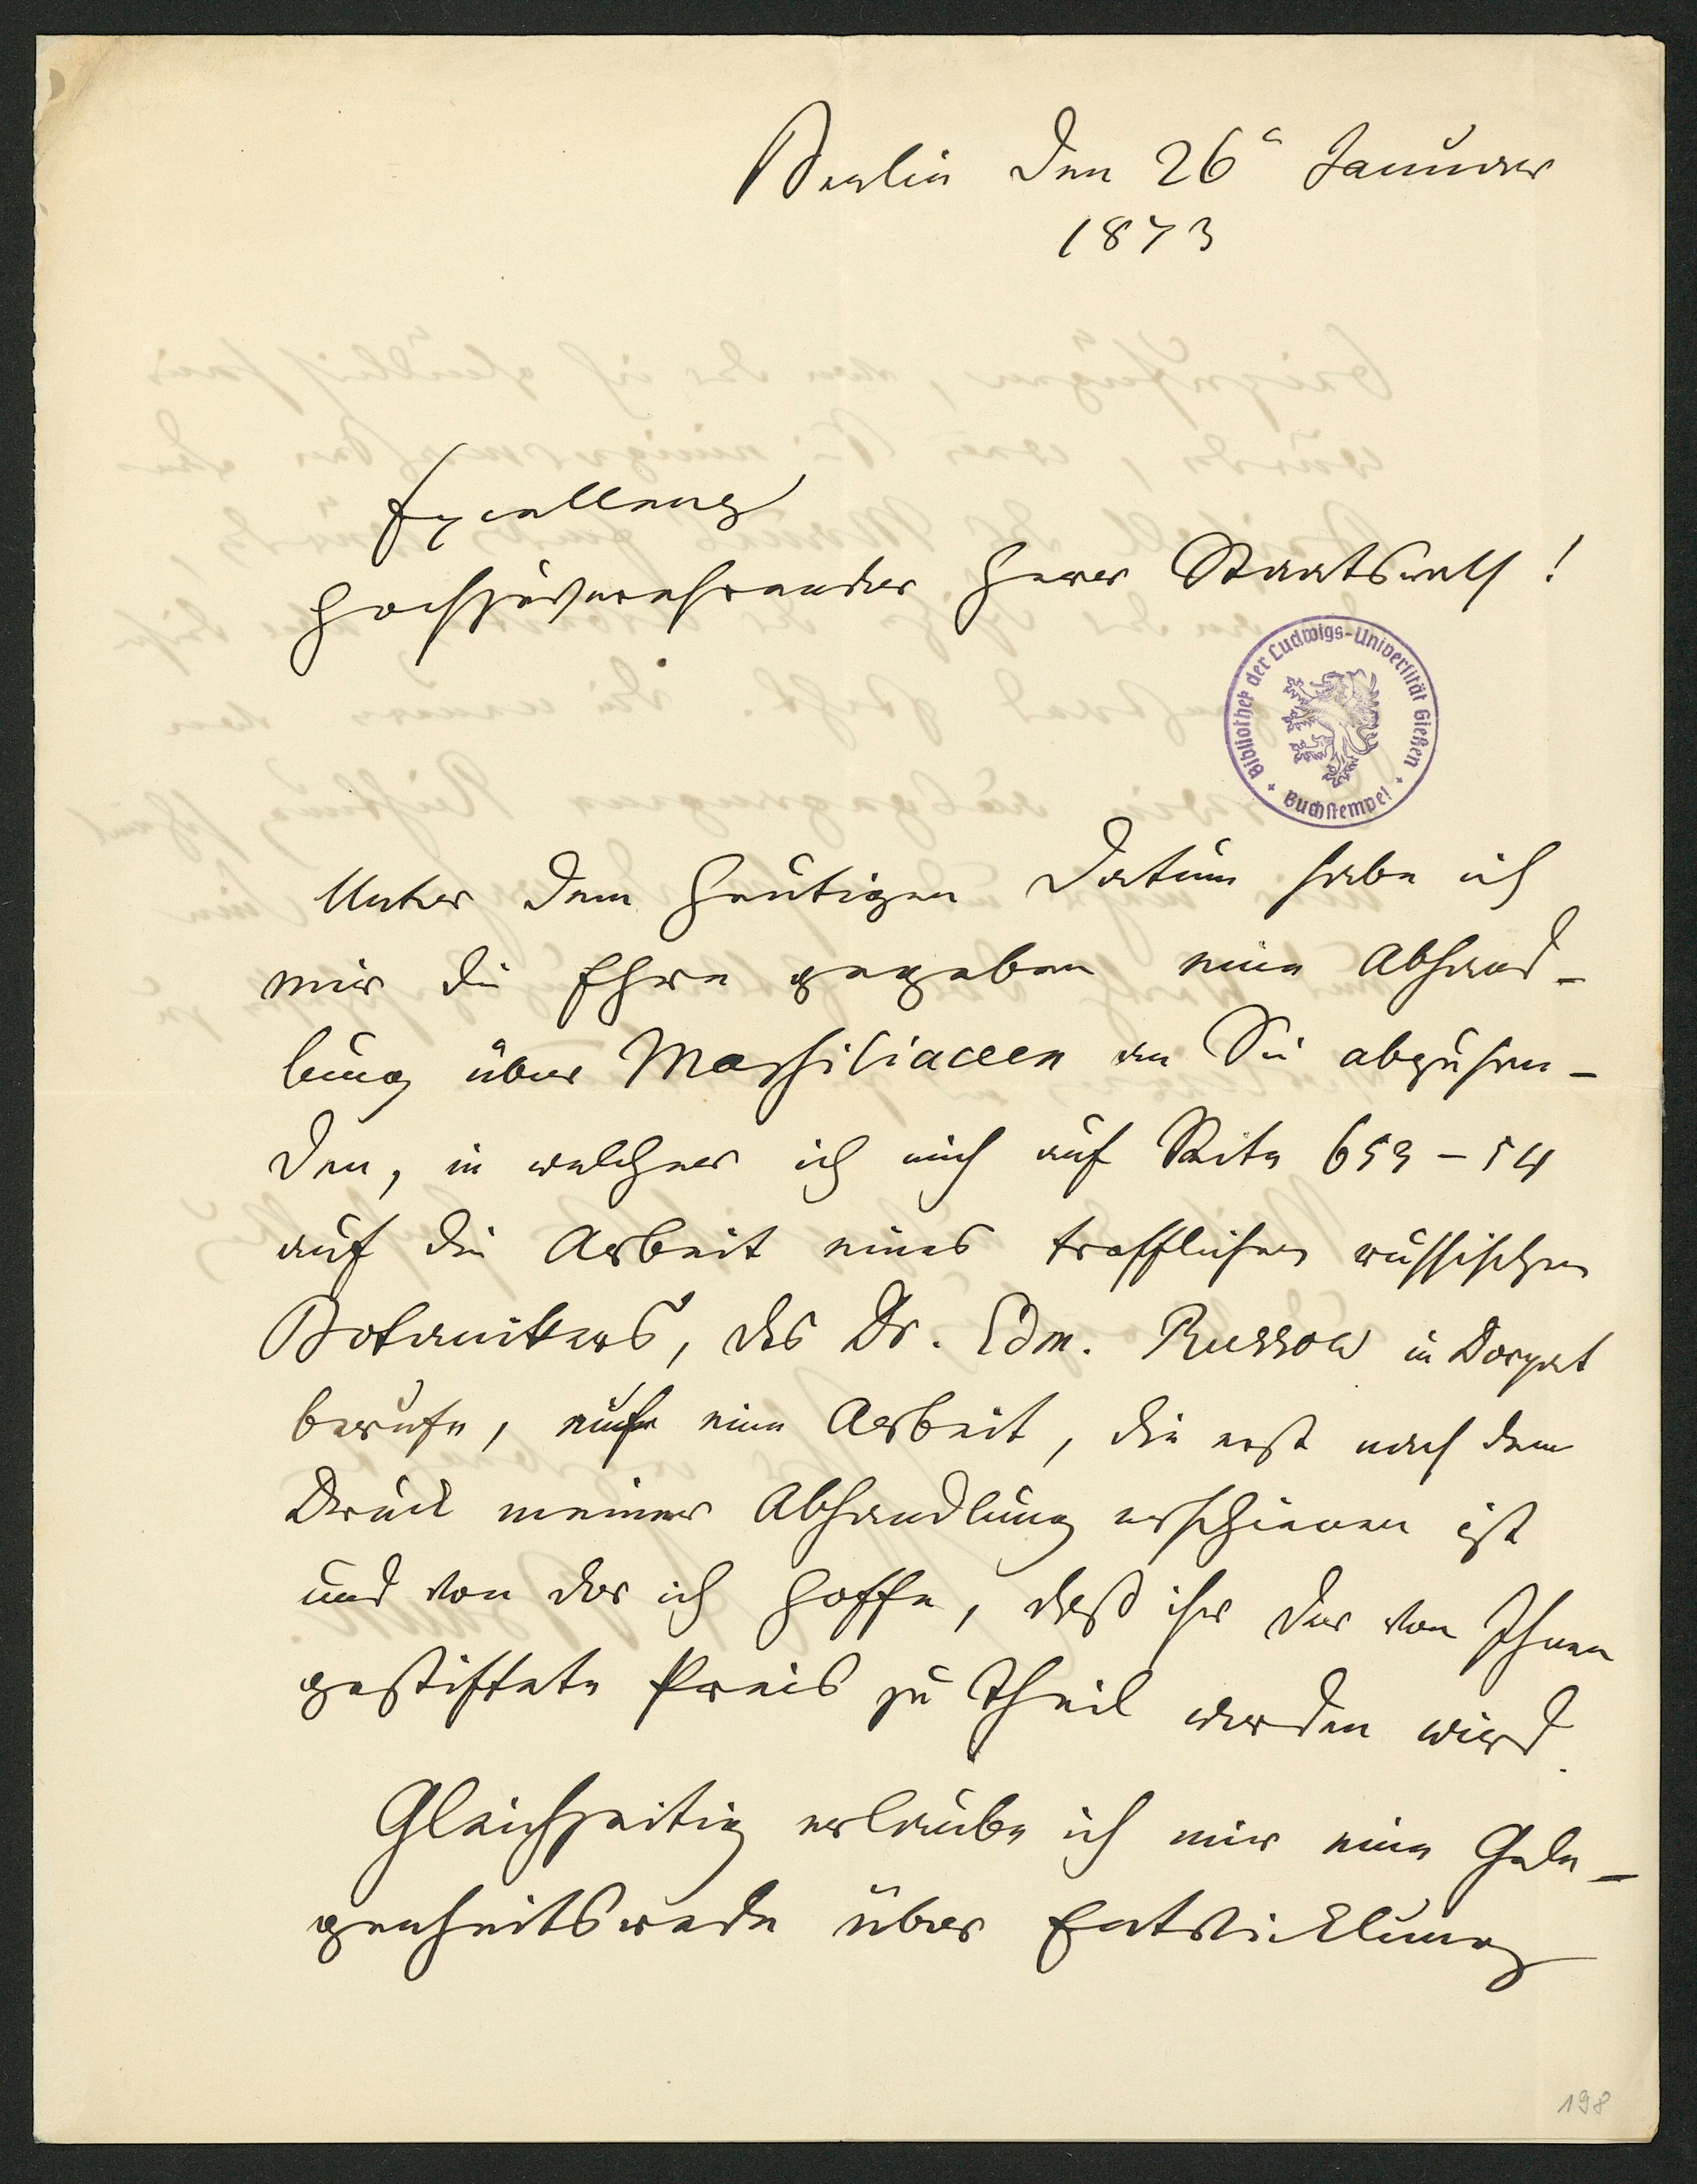 Berlin den 26ᵗ Januar
1873
Excellenz
Hochzuverehrender Herr Staatsrath!
Bibliothek der Ludwigs-Universität Gießen
Buchstempel
Unter dem heutigen Datum habe ich
mir die Ehre gegeben eine Abhand-
lung über Marsiliaceen an Sie abzusen-
den, in welcher ich mich auf Seite 653-54
auf die Arbeit eines trefflichen russischen
Botanikers, des Dr. Edm. Russow in Dorpat
berufe, eine Arbeit, die erst nach dem
Druck meiner Abhandlung erschienen ist
und von der ich hoffe, daß ihr der von Ihnen
gestiftete Preis zu Theil werden wird.
Gleichzeitig erlaube ich mir eine Gele-
genheitsrede über Entwicklung
198